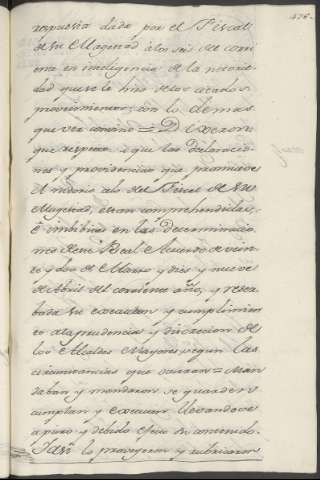 476
respuesta dada por el Fiscal
de su Magestad a los seis del corri
ente en inteligencia de la notorie
dad que se le hizo de los citados
provimientos; con lo demas
que ver convino = Dixeron
que respecto a que las declaracio
nes y providencias que promueve
el mismo del Fiscal de Su
Magestad, estan comprehendidas,
è imbibitas en las determinacio
nes de este Real Acuerdo de vein
te y dos de Marzo y diez y nueve
de Abril del corriente año, y reser
bada su execucion y cumplimien
to a la prudencia y discrecion de
los Alcaldes Mayores segun las
circunstancias que ocurran = Man
daban y mandaron se guarden
cumplan y executen llevandose
a puro y debido efecto su contenido.
Y asi lo proveyeron y rubricaron